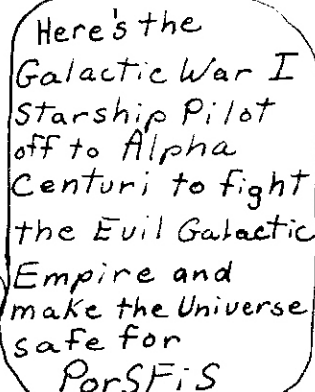 Here's the
Galactic War I
Starship Pilot
off to Alpha
Centuri to fight
the Evil Galactic
Empire and
make the Universe
safe for
PorSFiS